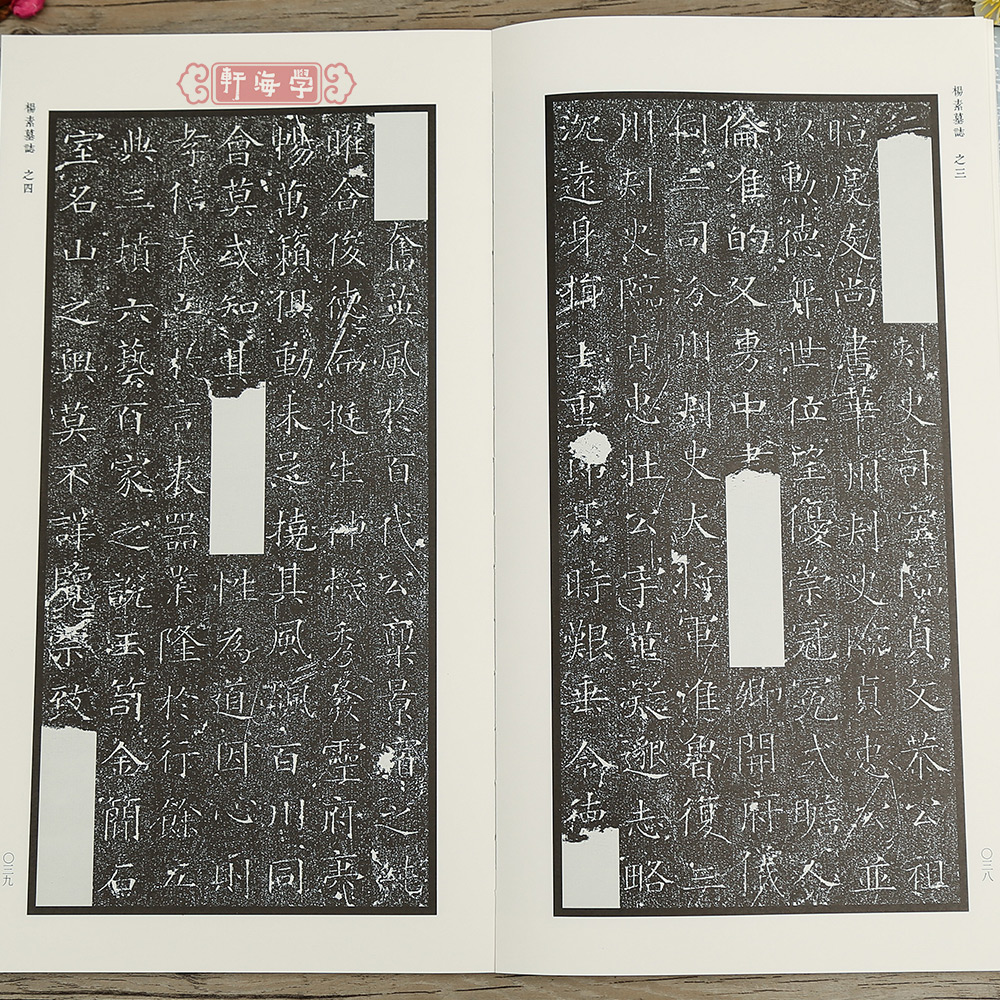 學海軒
楊素墓誌 之三
刺史司空臨貞文恭公祖
暄度支尚書華州刺史臨貞忠公並
以勳德弈世位望優崇冠冕式瞻人
倫准的父旉中書卿開府儀
同三司汾州刺史大將軍淮魯復三
州刺史臨貞忠壯公宇量凝邈志略
沉遠身擅士重師死時艱垂令德
〇三八
楊素墓誌 之四
奮英風於百代公稟景宿之純
曜含俊德而挺生神機秀發靈府夷
暢萬籟俱動未足撓其風飆百川同
會莫或知其性為道因心則
孝信義立於言表器業隆於行餘五
典三墳六藝百家之說玉笥金簡石
室名山之奧莫不詳覽宗致
〇三九